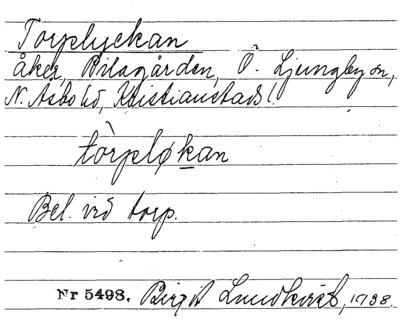 Torplyckan
åker, Bilagården, Ö. Ljungby sn,
N. Åsbo hd, Kristianstads l.
tòrpløkan
Bel. vid torp.
Nr 5498. Birgit Lundkvist, 1938.